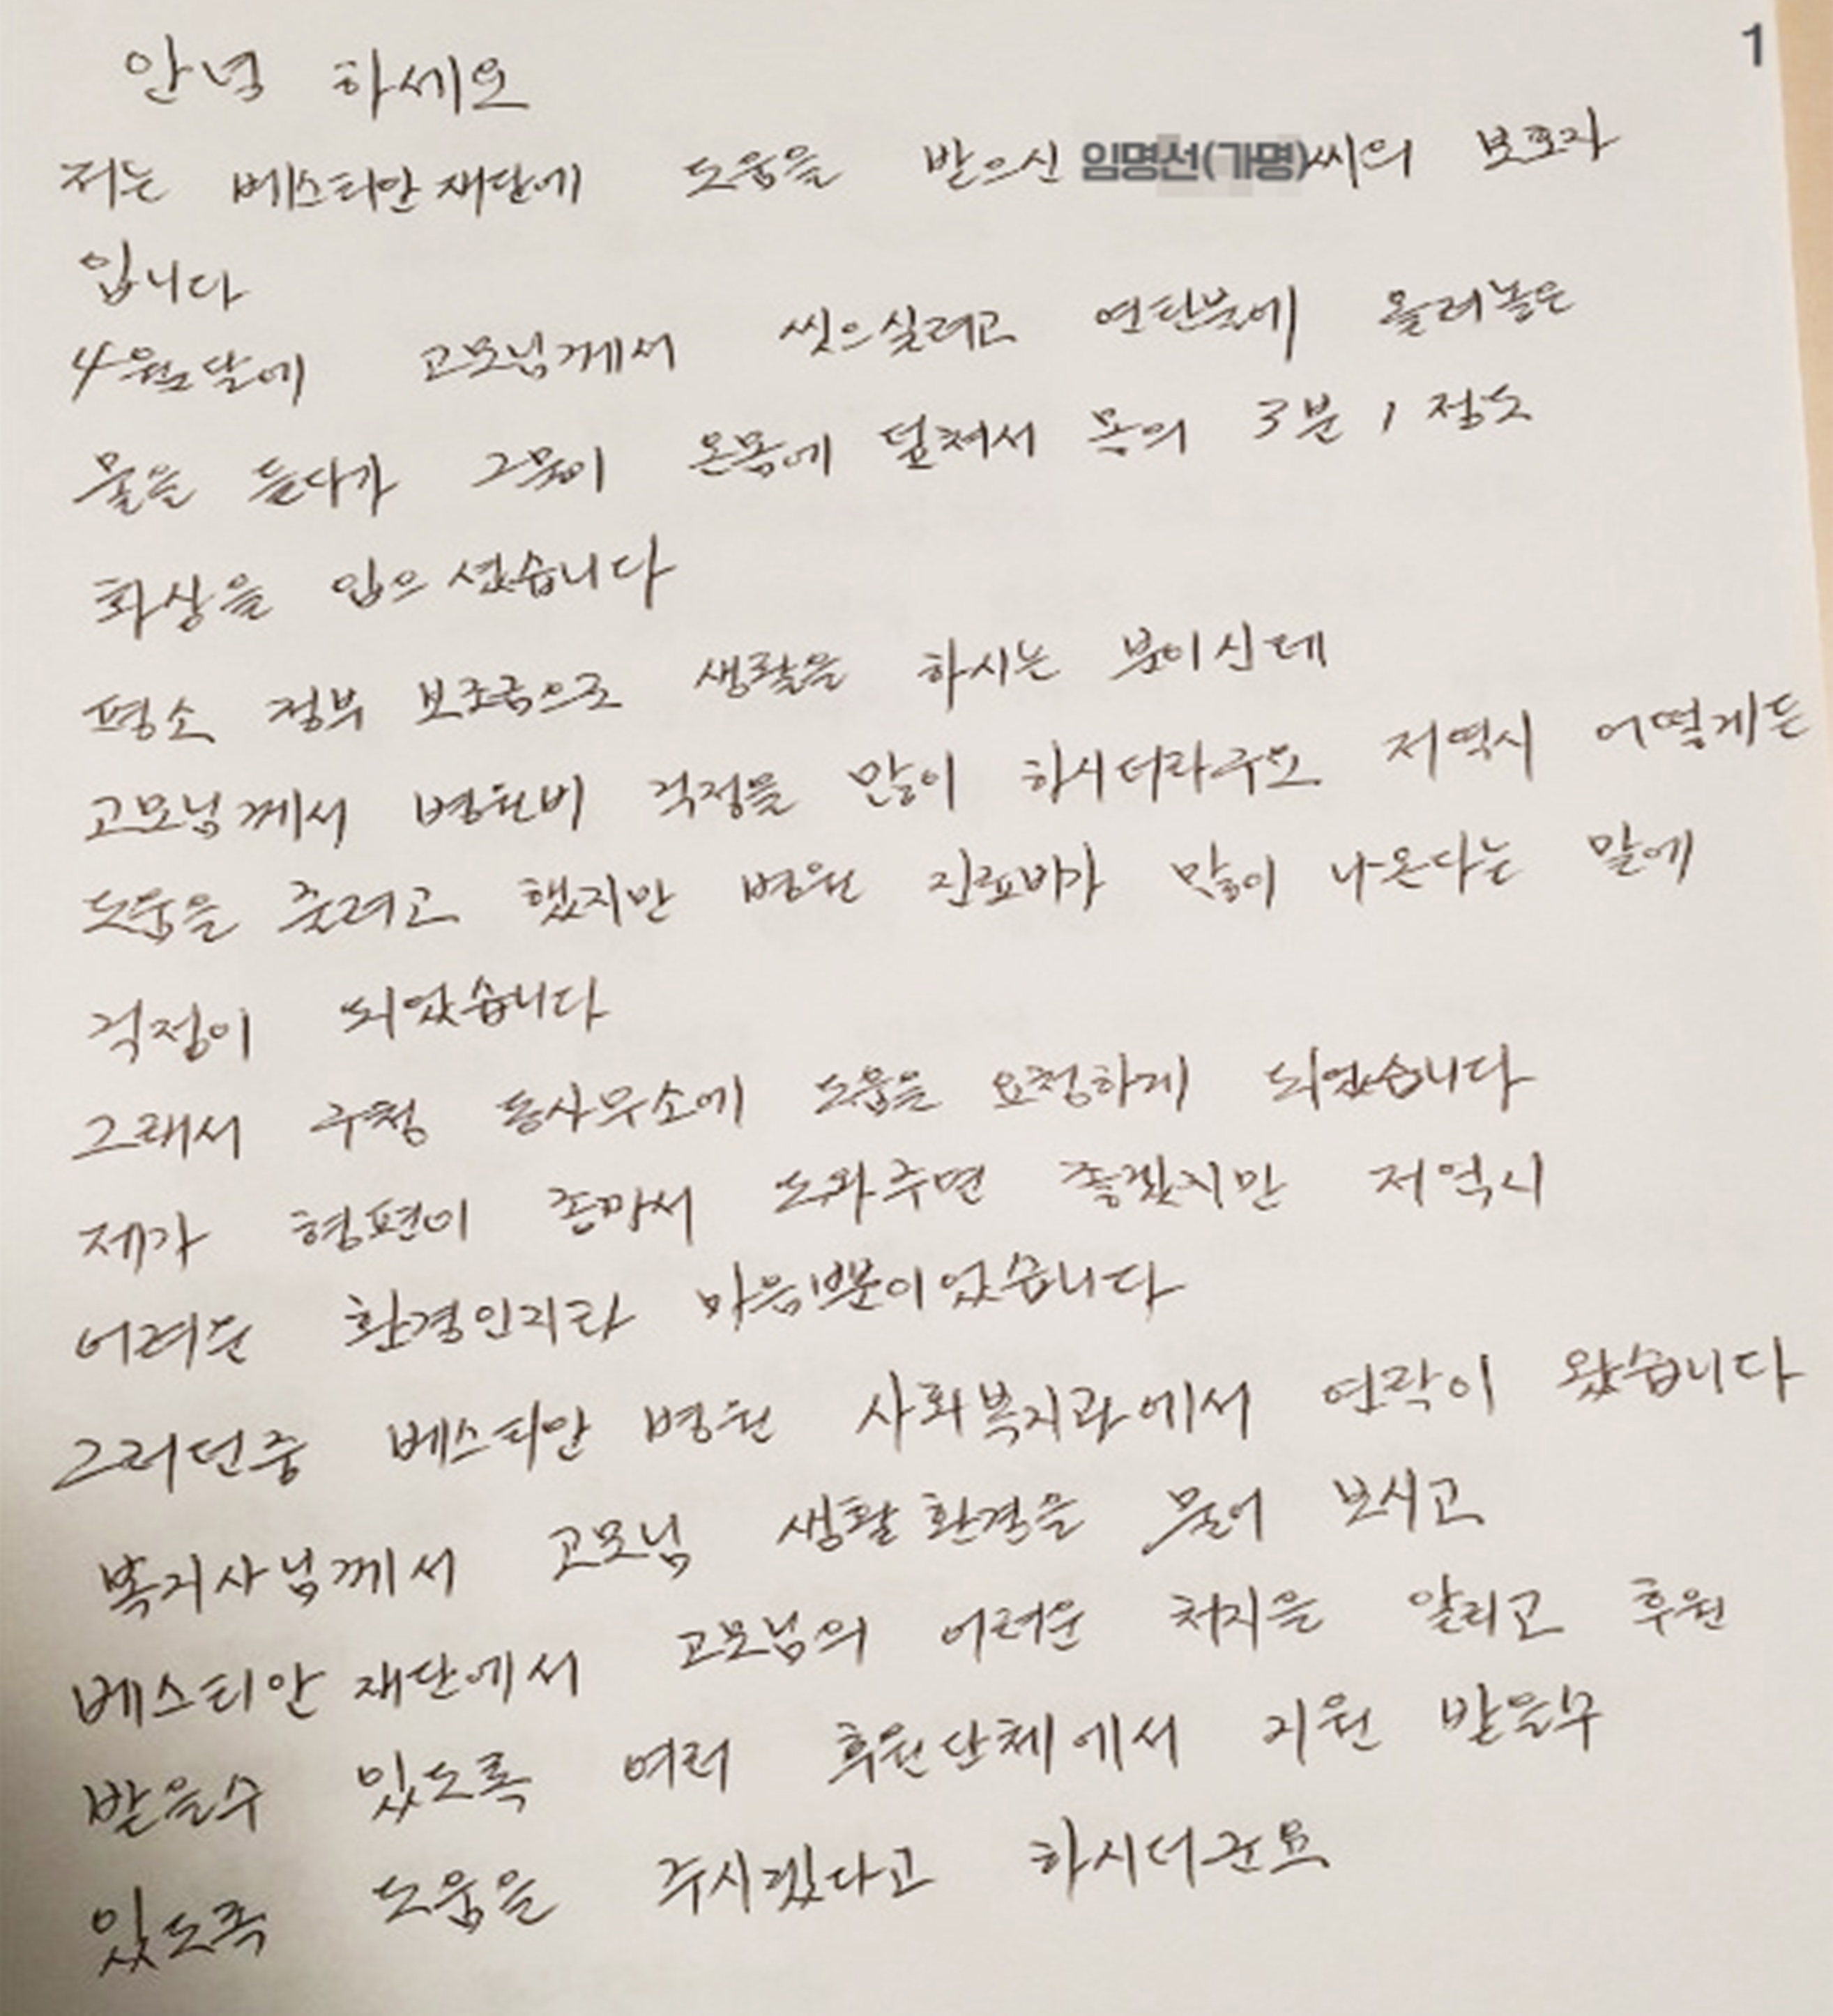 1
안녕 하세요
저는 베스티안 재단에 도움을 받으신 임명선(가명)씨의 보호자
입니다
4월달에 고모님께서 씻으실려고 연탄불에 올려놓은
물을 들다가 그물이 온몸에 덮쳐서 몸의 3분 1 정도
화상을 입으셨습니다
평소 정부 보조금으로 생활을 하시는 분이신데
고모님께서 병원비 걱정을 많이 하시더라구요 저역시 어떻게든
도움을 줄려고 했지만 병원 진료비가 많이 나온다는 말에
걱정이 되었습니다
그래서 구청 동사무소에 도움을 요청하게 되었습니다
제가 형편이 좋아서 도와주면 좋겠지만 저역시
어려운 환경인지라 마음뿐이었습니다
그러던중 베스티안 병원 사회복지과에서 연락이 왔습니다
복지사님께서 고모님 생활환경을 물어 보시고
베스티안 재단에서 고모님의 어려운 처지을 알리고 후원
받을수 있도록 여러 후원단체에서 지원 받을수
있도록 도움을 주시겠다고 하시더군요